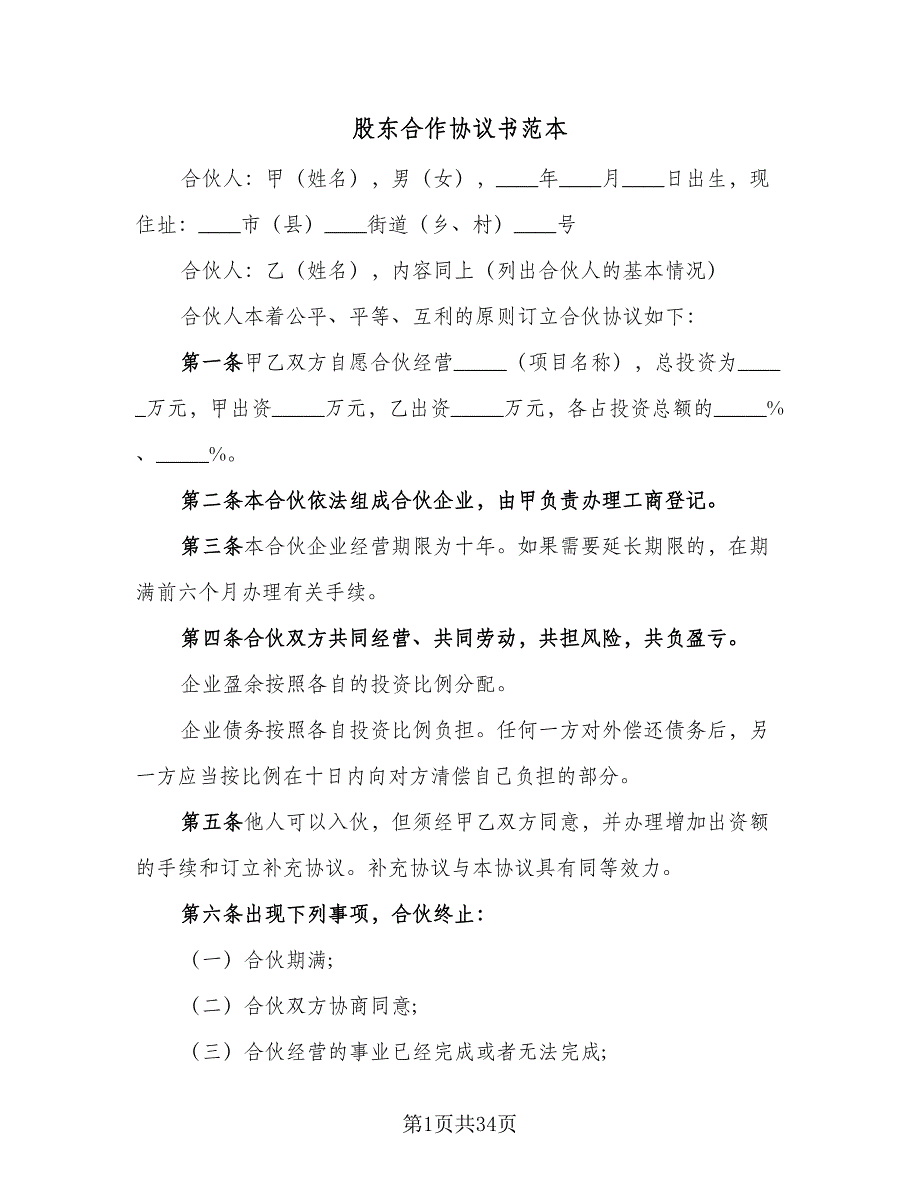 股东合作协议书范本
合伙人：甲（姓名），男（女），____年____月____日出生，现
住址：____市（县）____街道（乡、村）____号
合伙人：乙（姓名），内容同上（列出合伙人的基本情况）
合伙人本着公平、平等、互利的原则订立合伙协议如下：
第一条甲乙双方自愿合伙经营_____（项目名称），总投资为____
_万元，甲出资_____万元，乙出资_____万元，各占投资总额的_____%
、_____%。
第二条本合伙依法组成合伙企业，由甲负责办理工商登记。
第三条本合伙企业经营期限为十年。如果需要延长期限的，在期
满前六个月办理有关手续。
第四条合伙双方共同经营、共同劳动，共担风险，共负盈亏。
企业盈余按照各自的投资比例分配。
企业债务按照各自投资比例负担。任何一方对外偿还债务后，另
一方应当按比例在十日内向对方清偿自己负担的部分。
第五条他人可以入伙，但须经甲乙双方同意，并办理增加出资额
的手续和订立补充协议。补充协议与本协议具有同等效力。
第六条出现下列事项，合伙终止：
（一）合伙期满;
（二）合伙双方协商同意;
（三）合伙经营的事业已经完成或者无法完成;
第1页共34页